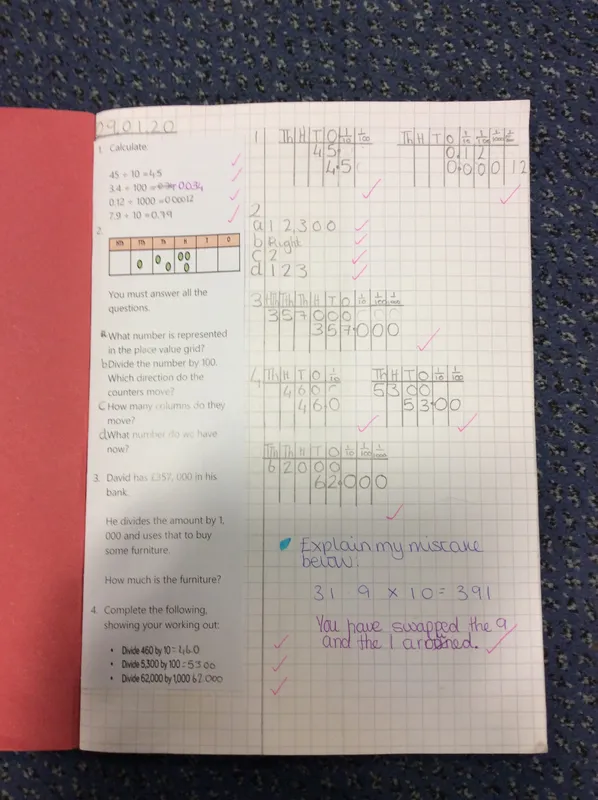 29.01.20
1. Calculate.
45 ÷ 10 = 4.5
3.4 ÷ 100 = 0.034
0.12 ÷ 1000 = 0.00012
7.9 ÷ 10 = 0.79
2.
HTh TTh Th H T O
You must answer all the
questions.
a What number is represented
in the place value grid?
b Divide the number by 100.
Which direction do the
counters move?
c How many columns do they
move?
d What number do we have
now?
3. David has £357, 000 in his
bank.
He divides the amount by 1,
000 and uses that to buy
some furniture.
How much is the furniture?
4. Complete the following,
showing your working out:
• Divide 460 by 10 =
• Divide 5,300 by 100 = 53 00
• Divide 62,000 by 1,000 62 000
1 Th H T O 1/10 1/100
4 5.
4.5
Th H T O 1/10 1/100
0.1 2
0.0 0 0 1 2
2
a 1 2,3 0 0
b Right
c 2
d 1 2 3
3 HTh TTh Th H T O 1/10 1/100
3 5 7 0 0 0
3 5 7.0 0 0
4 Th H T O 1/10
4 6 0
4 6.0
Th H T O 1/10 1/100
5 3 0 0
5 3.0 0
Th H T O 1/10 1/100
6 2 0 0 0
6 2.0 0 0
Explain my mistake
below:
31.9 x 10 = 391
You have swapped the 9
and the 1